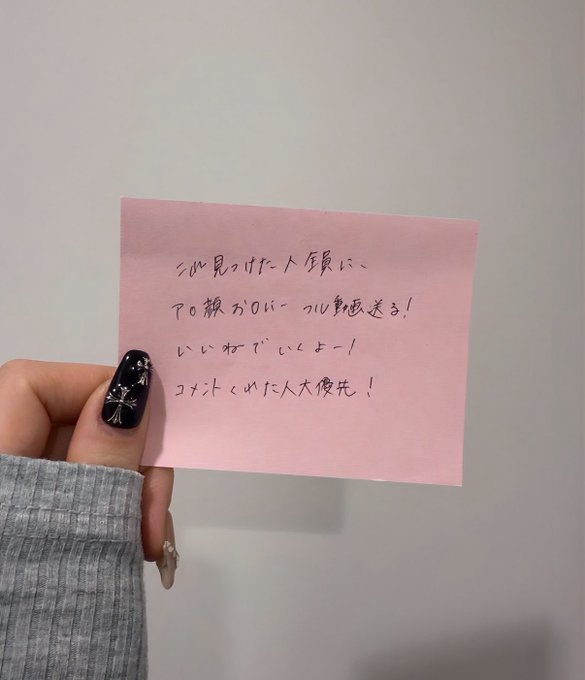 これ見つけた人全員に、
ア〇顔お〇にーフル動画送る!
いいねでいくよー!
コメントくれた人大優先!